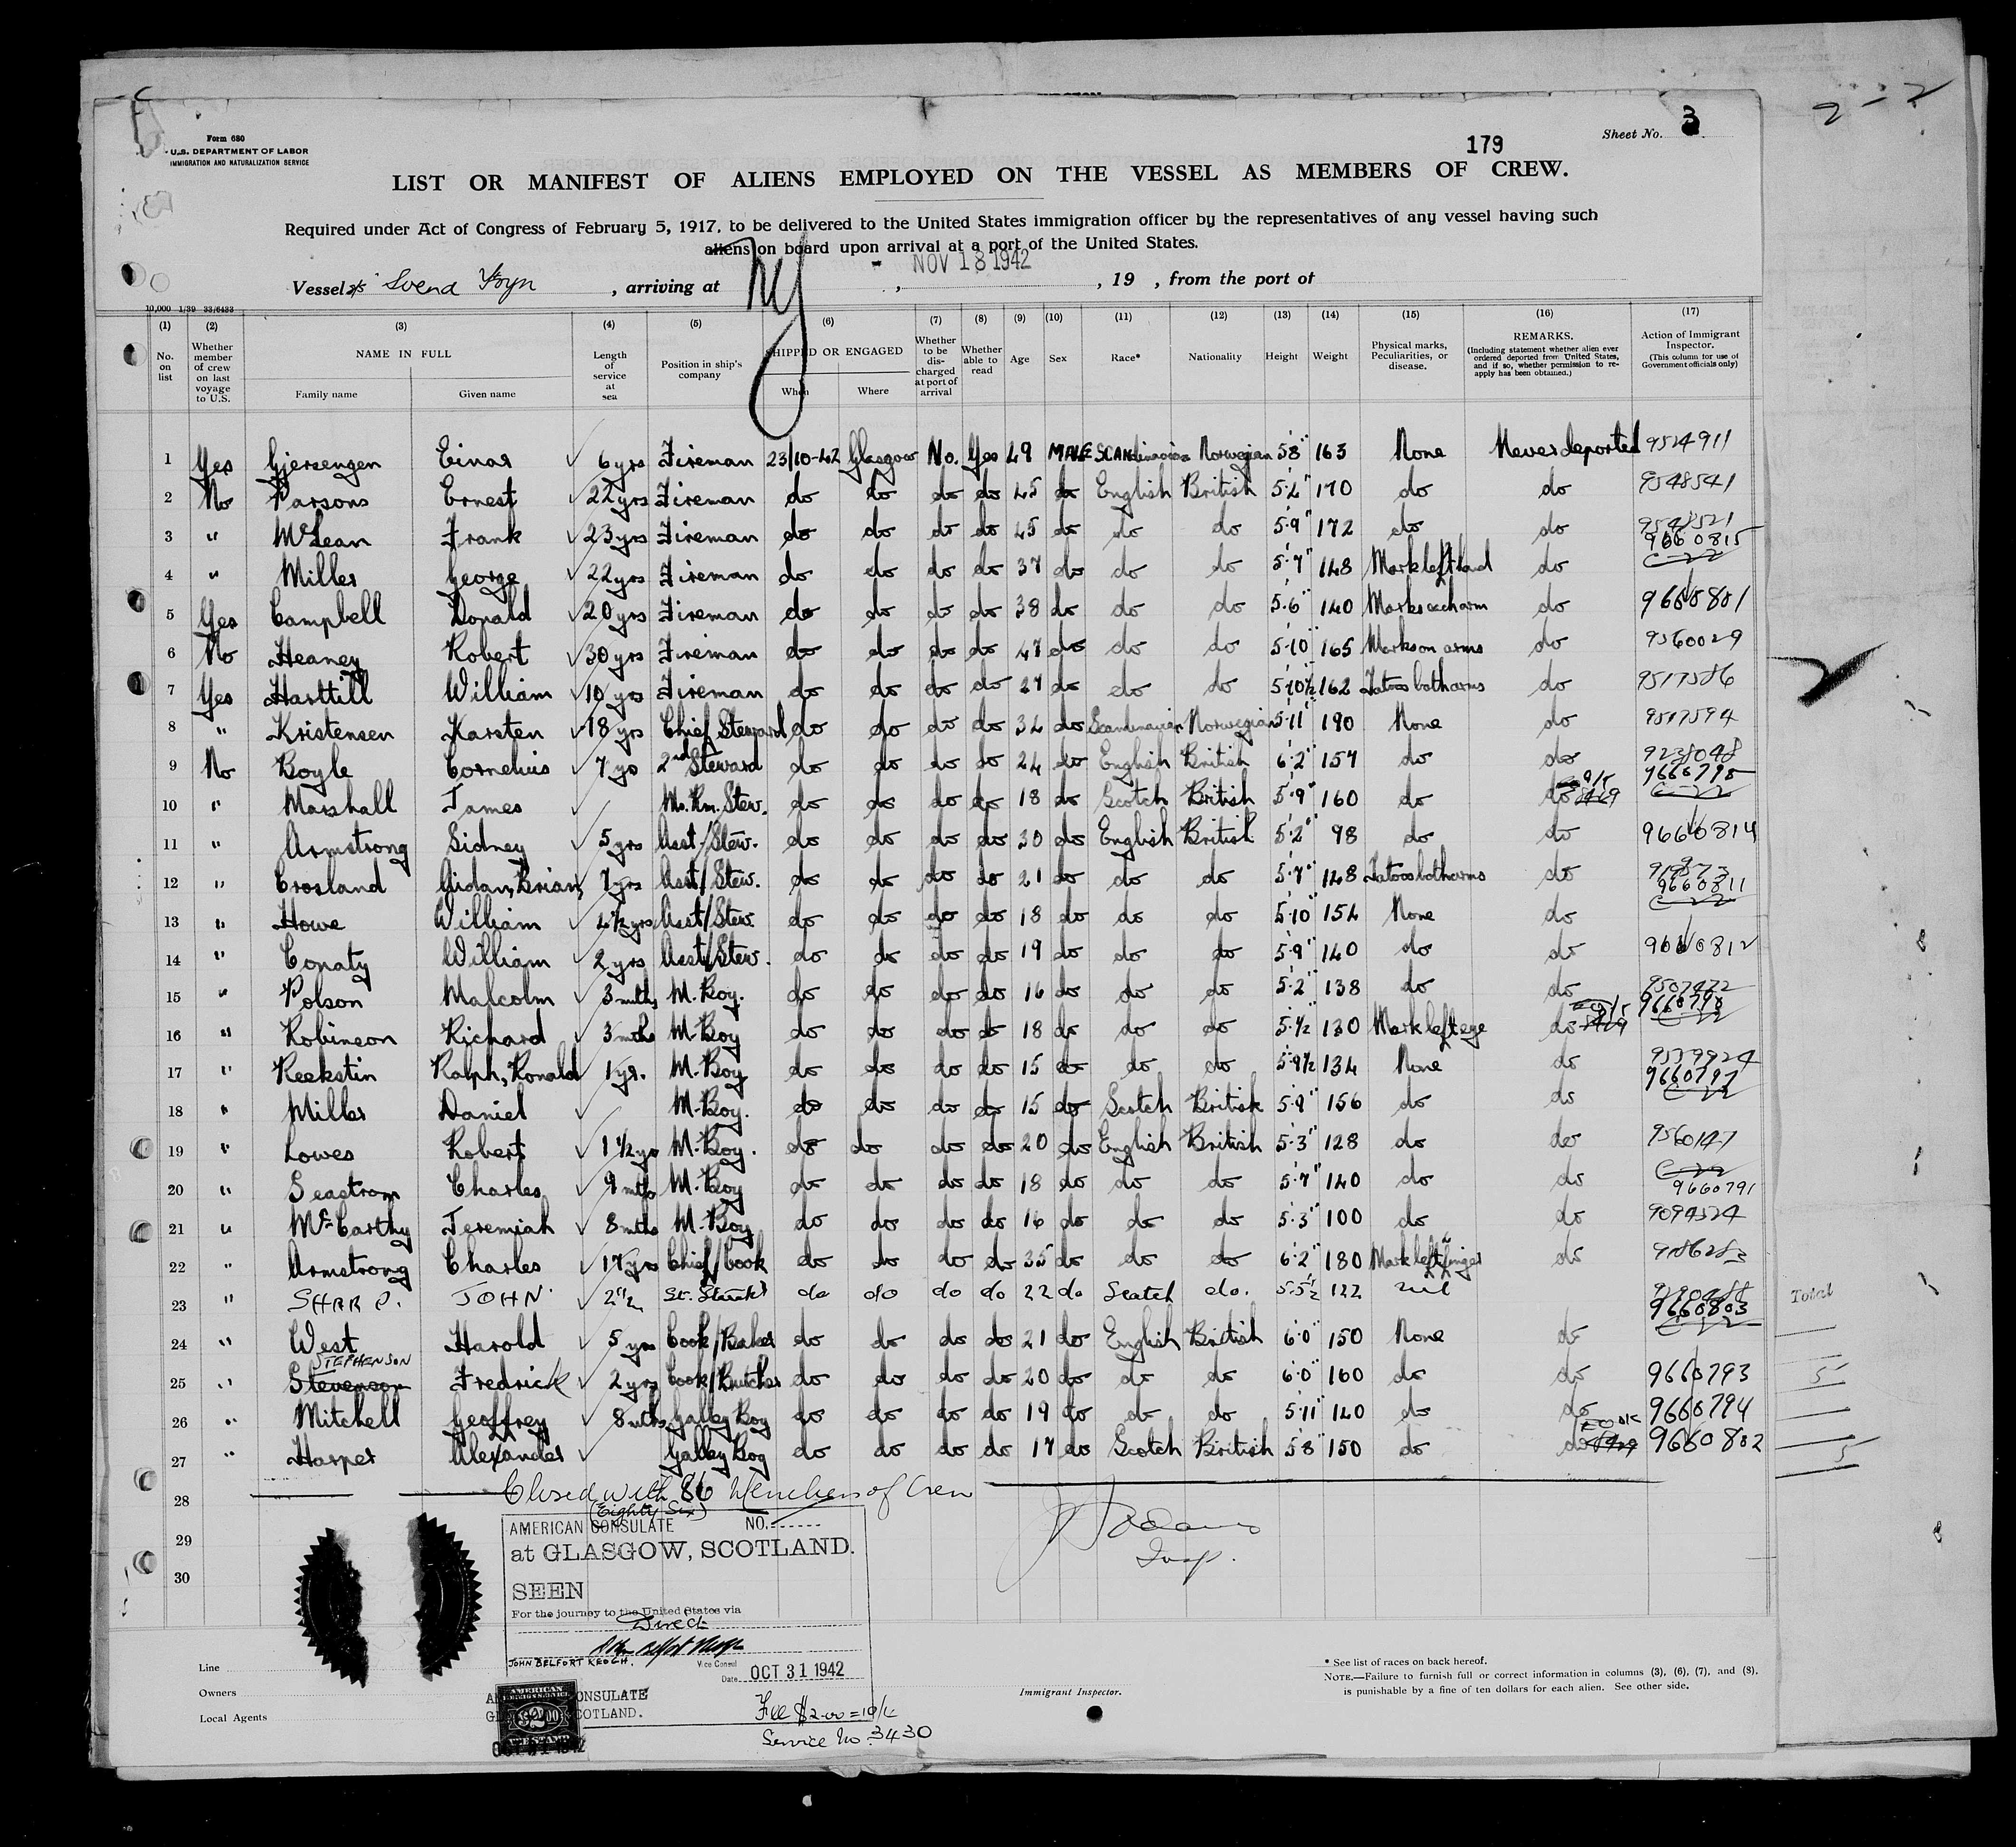 Form 680
U.S. DEPARTMENT OF LABOR
IMMIGRATION AND NATURALIZATION SERVICE
179
Sheet No. 3
2 - 2
LIST OR MANIFEST OF ALIENS EMPLOYED ON THE VESSEL AS MEMBERS OF CREW.
Required under Act of Congress of February 5, 1917, to be delivered to the United States immigration officer by the representatives of any vessel having such
aliens on board upon arrival at a port of the United States.
Vessel s/s Svend Foyn , arriving at NY , NOV 18 1942 , 19 , from the port of
10,000 1/39 33/6433
(1) (2) (3) (4) (5) (6) (7) (8) (9) (10) (11) (12) (13) (14) (15) (16) (17)
No. on list
Whether member of crew on last voyage to U.S.
NAME IN FULL
Family name
Given name
Length of service at sea
Position in ship's company
SHIPPED OR ENGAGED
When
Where
Whether to be discharged at port of arrival
Whether able to read
Age
Sex
Race*
Nationality
Height
Weight
Physical marks, Peculiarities, or disease.
REMARKS.
(Including statement whether alien ever ordered deported from United States, and if so, whether permission to reapply has been obtained.)
Action of Immigrant Inspector.
(This column for use of Government officials only)
1 Yes Gjersengen Einar 6 yrs Fireman 23/10-42 Glasgow No. Yes 49 MALE SCANdinavian Norwegian 5'8" 163 None Never deported 9524911
2 No Parsons Ernest 22 yrs Fireman do do do do 45 do English British 5'4" 170 do do 9548541
3 " McLean Frank 23 yrs Fireman do do do do 45 do do do 5'9" 172 do do 9548521
9660815
4 " Miller George 22 yrs Fireman do do do do 37 do do do 5'7" 148 Mark left hand do
5 Yes Campbell Donald 20 yrs Fireman do do do do 38 do do do 5'6" 140 Marks each arm do 9660801
6 No Heaney Robert 30 yrs Fireman do do do do 47 do do do 5'10" 165 Marks on arms do 9560029
7 Yes Harttill William 10 yrs Fireman do do do do 27 do do do 5'10½ 162 Tatoos both arms do 9517586
8 " Kristensen Karsten 18 yrs Chief Steward do do do do 34 do Scandinavian Norwegian 5'11" 190 None do 9517594
9 No Boyle Cornelius 7 yrs 2nd Steward do do do do 24 do English British 6'2" 157 do do 9238048
9660795
10 " Marshall James Ms. Rm. Stew. do do do do 18 do Scotch British 5'9" 160 do do
11 " Armstrong Sidney 5 yrs Asst./Stew. do do do do 30 do English British 5'2" 98 do do 9660814
12 " Crosland Aidan, Brian, 7 yrs Asst/Stew. do do do do 21 do do do 5'7" 148 Tatoos both arms do
9660811
13 " Howe William 4½ yrs Asst/Stew. do do do do 18 do do do 5'10" 154 None do
14 " Conaty William 2 yrs Asst/Stew. do do do do 19 do do do 5'9" 140 do do 9660812
15 " Polson Malcolm 3 mths M. Boy. do do do do 16 do do do 5'2" 138 do do 9507472
9660790
16 " Robinson Richard 3 mths M. Boy do do do do 18 do do do 5'½ 130 Mark left eye do
17 " Reekstin Ralph, Ronald 1 yr. M. Boy do do do do 15 do do do 5'9½ 134 None do 9539924
9660797
18 " Miller Daniel M. Boy. do do do do 15 do Scotch British 5'9" 156 do do
19 " Lowes Robert 1½ yrs M. Boy. do do do do 20 do English British 5'3" 128 do do 9560147
20 " Seastrom Charles 9 mths M. Boy do do do do 18 do do do 5'7" 140 do do
9660791
21 " McCarthy Jeremiah 8 mths M. Boy do do do do 16 do do do 5'3" 100 do do 9094524
22 " Armstrong Charles 17 yrs Chief/Cook do do do do 35 do do do 6'2" 180 Mark left finger do 9186283
23 " SHARP. JOHN. do do do do 22 do Scotch do. 5'5½ 122 nil
9660803
24 " West Harold 5 yrs Cook/Baker do do do do 21 do English British 6'0" 150 None do
STEPHENSON
25 " Stevenson Fredrick 2 yrs Cook/Butcher do do do do 20 do do do 6'0" 160 do do 9660793
26 " Mitchell Geoffrey 8 mths Galley Boy do do do do 19 do do do 5'11" 140 do do 9660794
27 " Harper Alexander Galley Boy do do do do 17 do Scotch British 5'8" 150 do do 9660802
28
29
30
Total
5
5
Closed with 86 Members of Crew
(Eighty Six)
Insp.
AMERICAN CONSULATE NO.
at GLASGOW, SCOTLAND.
SEEN
For the journey to the United States via
Direct
JOHN BELFORT KEOGH. Vice Consul
Date OCT 31 1942
Fee $2.00 =
Service No. 3430
AMERICAN
$2.00
Line
Owners
Local Agents
Immigrant Inspector.
* See list of races on back hereof.
NOTE.—Failure to furnish full or correct information in columns (3), (6), (7), and (8),
is punishable by a fine of ten dollars for each alien. See other side.